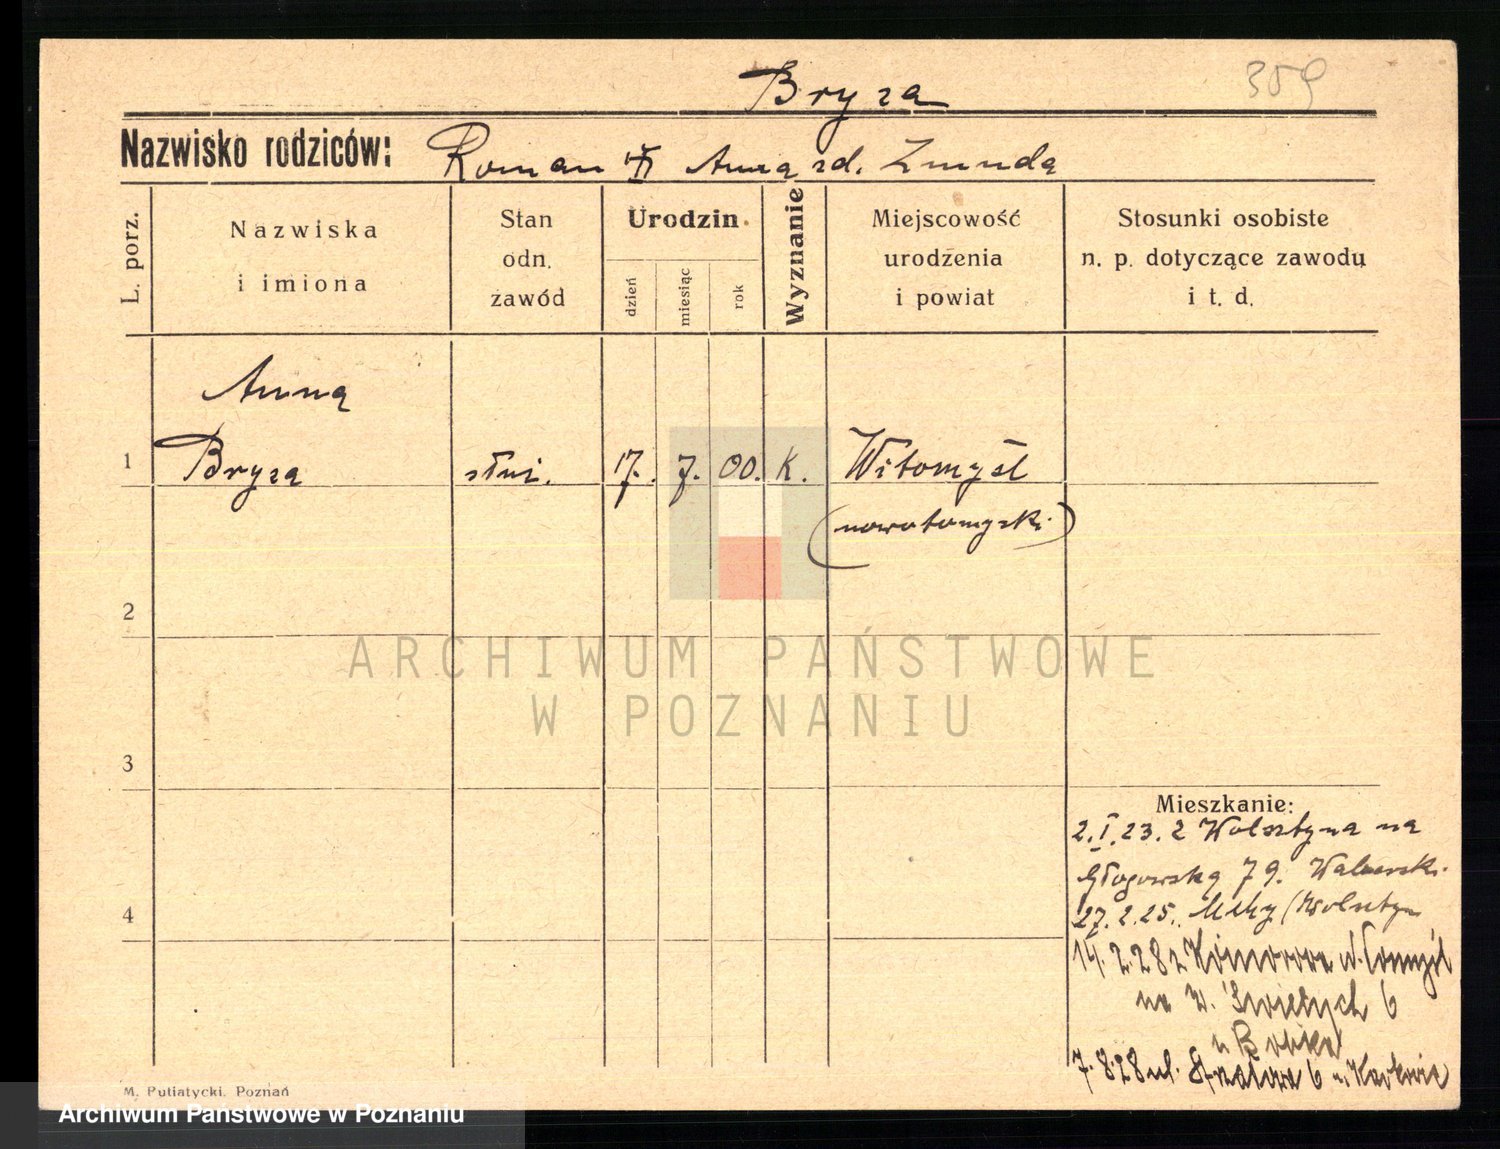 Bryza
359
Nazwisko rodziców: Roman Anna zd. Żmuda
L. porz.
Nazwiska
i imiona
Stan
odn.
zawód
Urodzin
dzień
miesiąc
rok
Wyznanie
Miejscowość
urodzenia
i powiat
Stosunki osobiste
n. p. dotyczące zawodu
i t. d.
Anna
1 Bryza służ. 17. 7. 00. K. Witomyśl
(nowotomyski)
2
ARCHIWUM PAŃSTWOWE
W POZNANIU
3
Mieszkanie:
2.I.23. z Wolsztyna na
Głogowską 79.
4
27.2.25. (Wolsztyn
14.2.28 z Komorowa N. Tomyśl
na W. Świętych 6
7.8.28 ul. 6 u
M. Putiatycki. Poznań
Archiwum Państwowe w Poznaniu